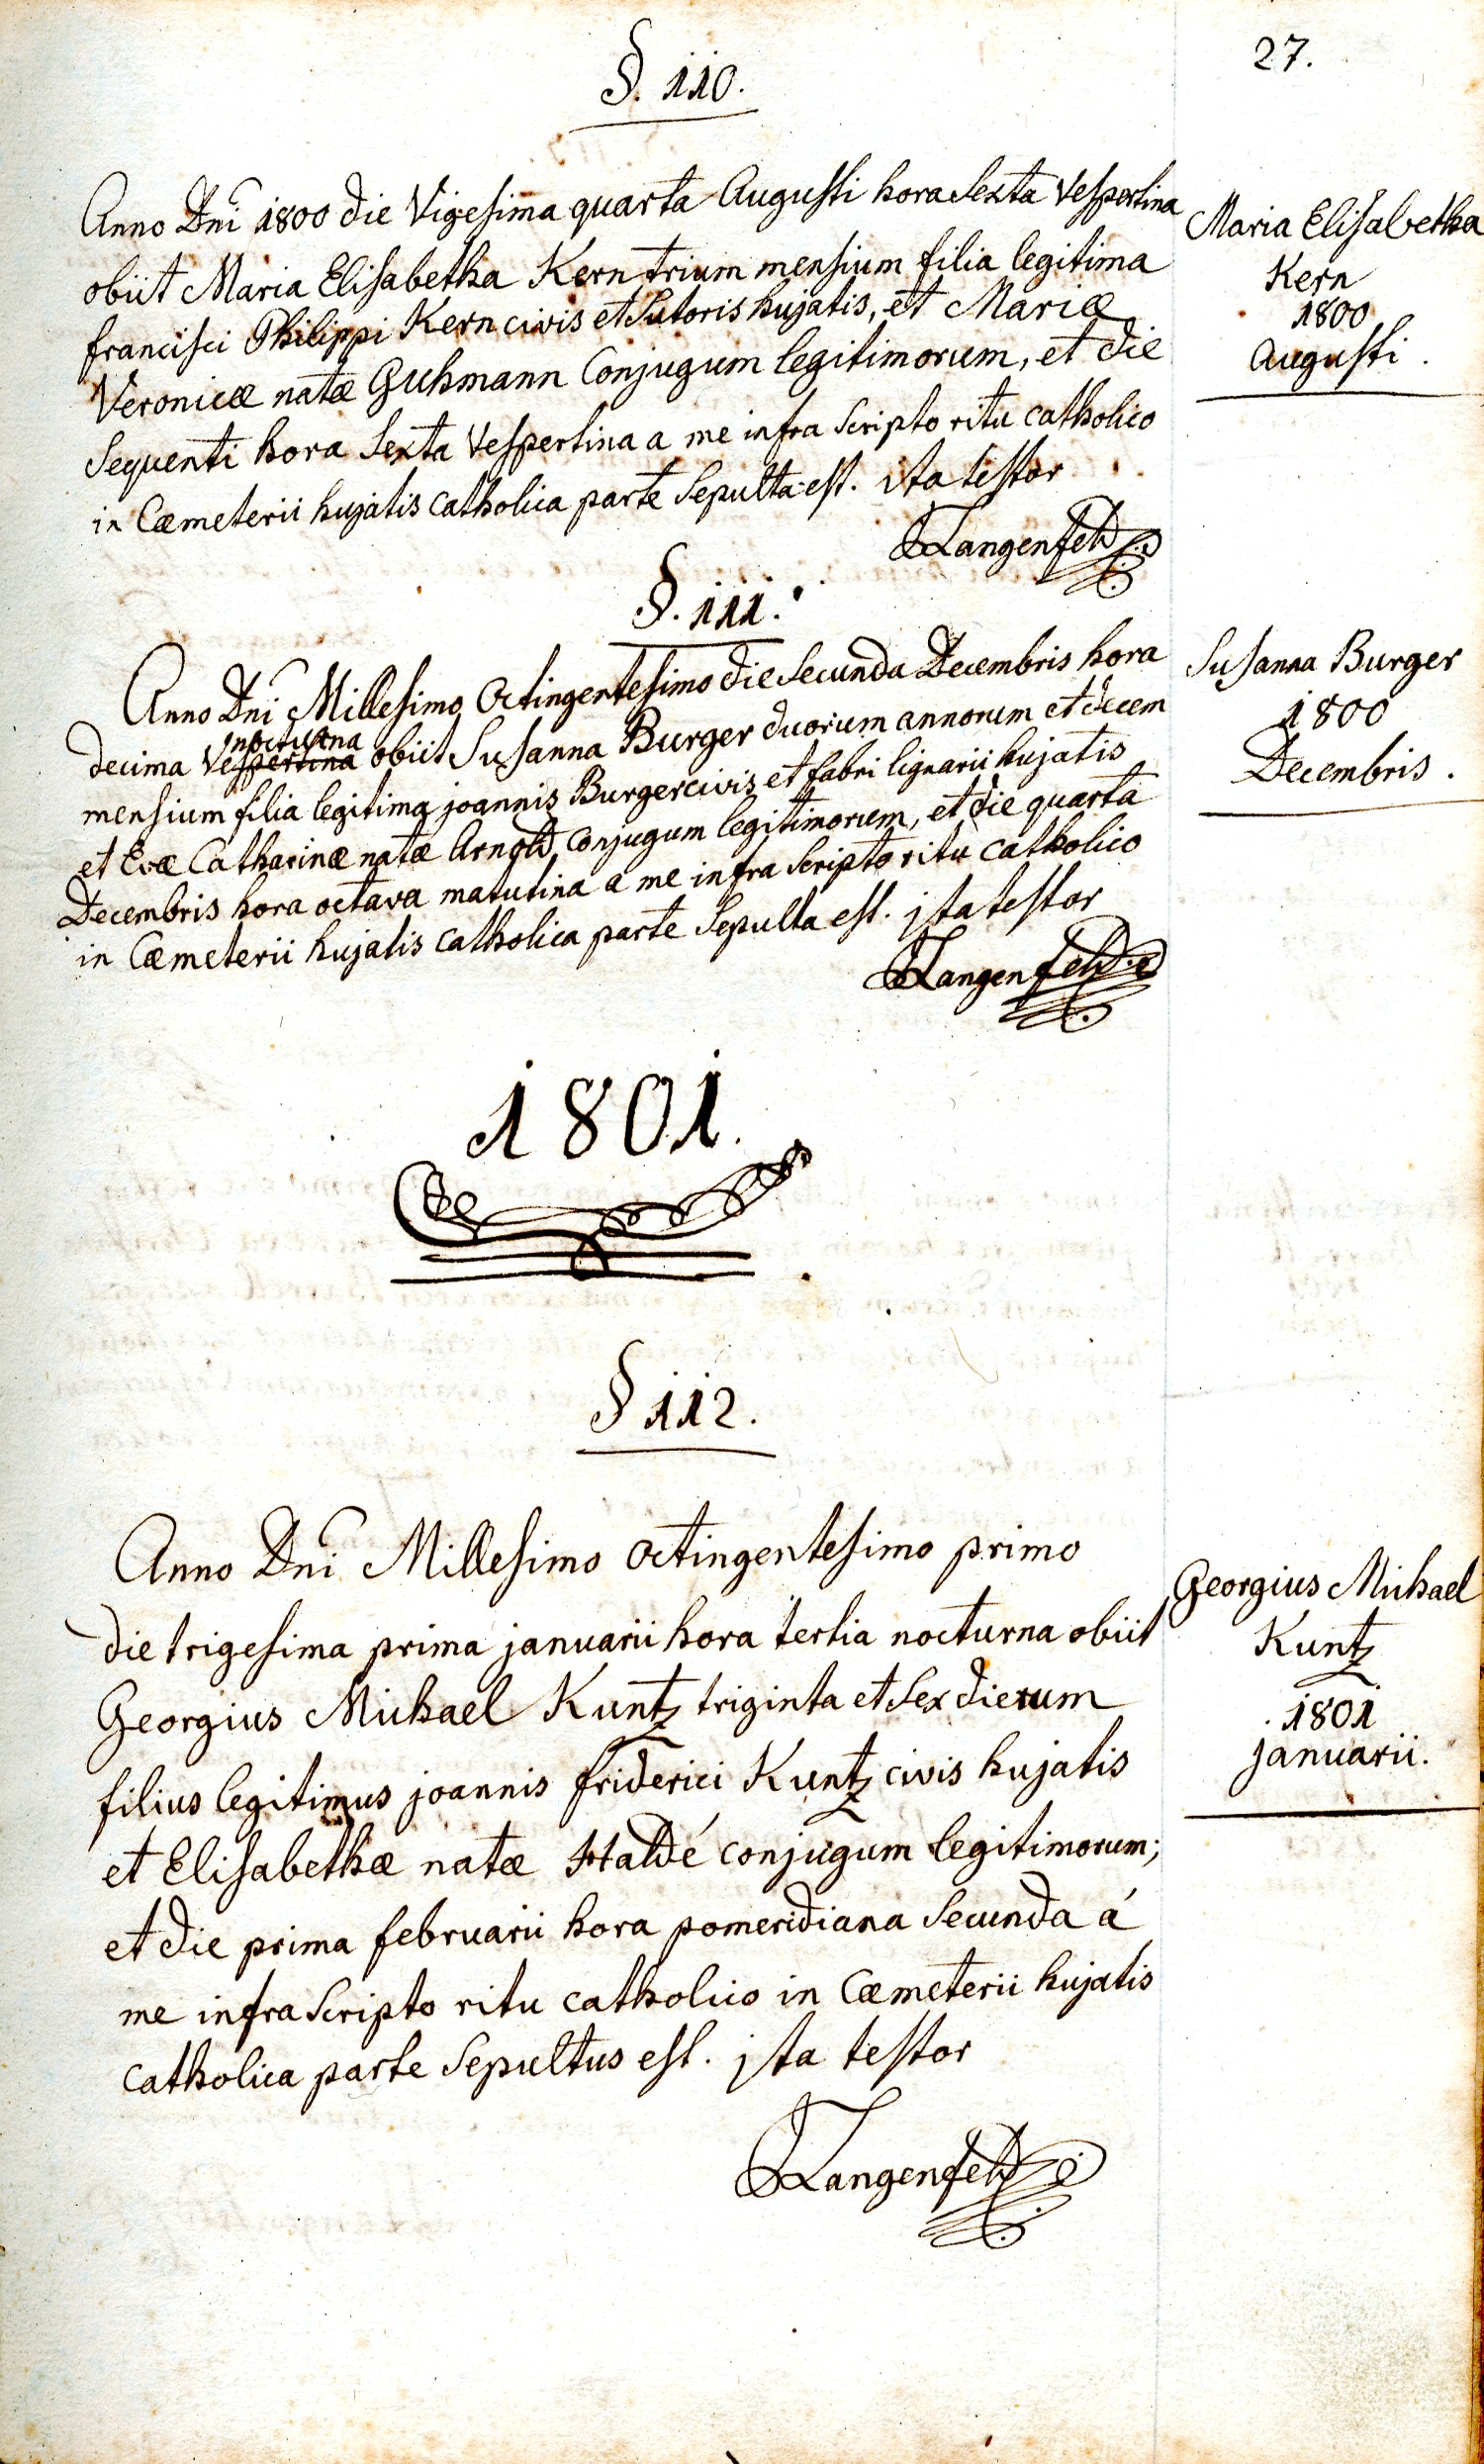 27.
§. 110.
Anno Dni 1800 die Vigesima quarta Augusti hora Sexta Vespertina
obiit Maria Elisabetha Kern trium mensium filia legitima
francisci Philippi Kern civis et Sutoris hujatis, et Mariæ
Veronicæ natæ Guhmann Conjugum legitimorum, et die
Sequenti hora Sexta Vespertina a me infra Scripto ritu catholico
in Cæmeterii hujatis catholica parte Sepulta est. ita testor
Langenfeld
Maria Elisabetha
Kern
1800
Augusti.
§. 111.
Anno Dni Millesimo Octingentesimo die Secunda Decembris hora
nocturna
decima Vespertina obiit Susanna Burger duorum annorum et decem
mensium filia legitima joannis Burger civis et fabri lignarii hujatis
et Evæ Catharinæ natæ Arnold, Conjugum legitimorum, et die quarta
Decembris hora octava matutina a me infra Scripto ritu catholico
in Cæmeterii hujatis catholica parte Sepulta est. jta testor
Langenfeld
Susanna Burger
1800
Decembris.
1801.
§ 112.
Anno Dni Millesimo Octingentesimo primo
die trigesima prima januarii hora tertia nocturna obiit
Georgius Michael Kuntz triginta et Sex dierum
filius legitimus joannis friderici Kuntz civis hujatis
et Elisabethæ natæ Haldé conjugum legitimorum;
et die prima februarii hora pomeridiana Secunda á
me infra Scripto ritu catholico in Cæmeterii hujatis
catholica parte Sepultus est. jta testor
Langenfeld
Georgius Michael
Kuntz
1801
januarii.